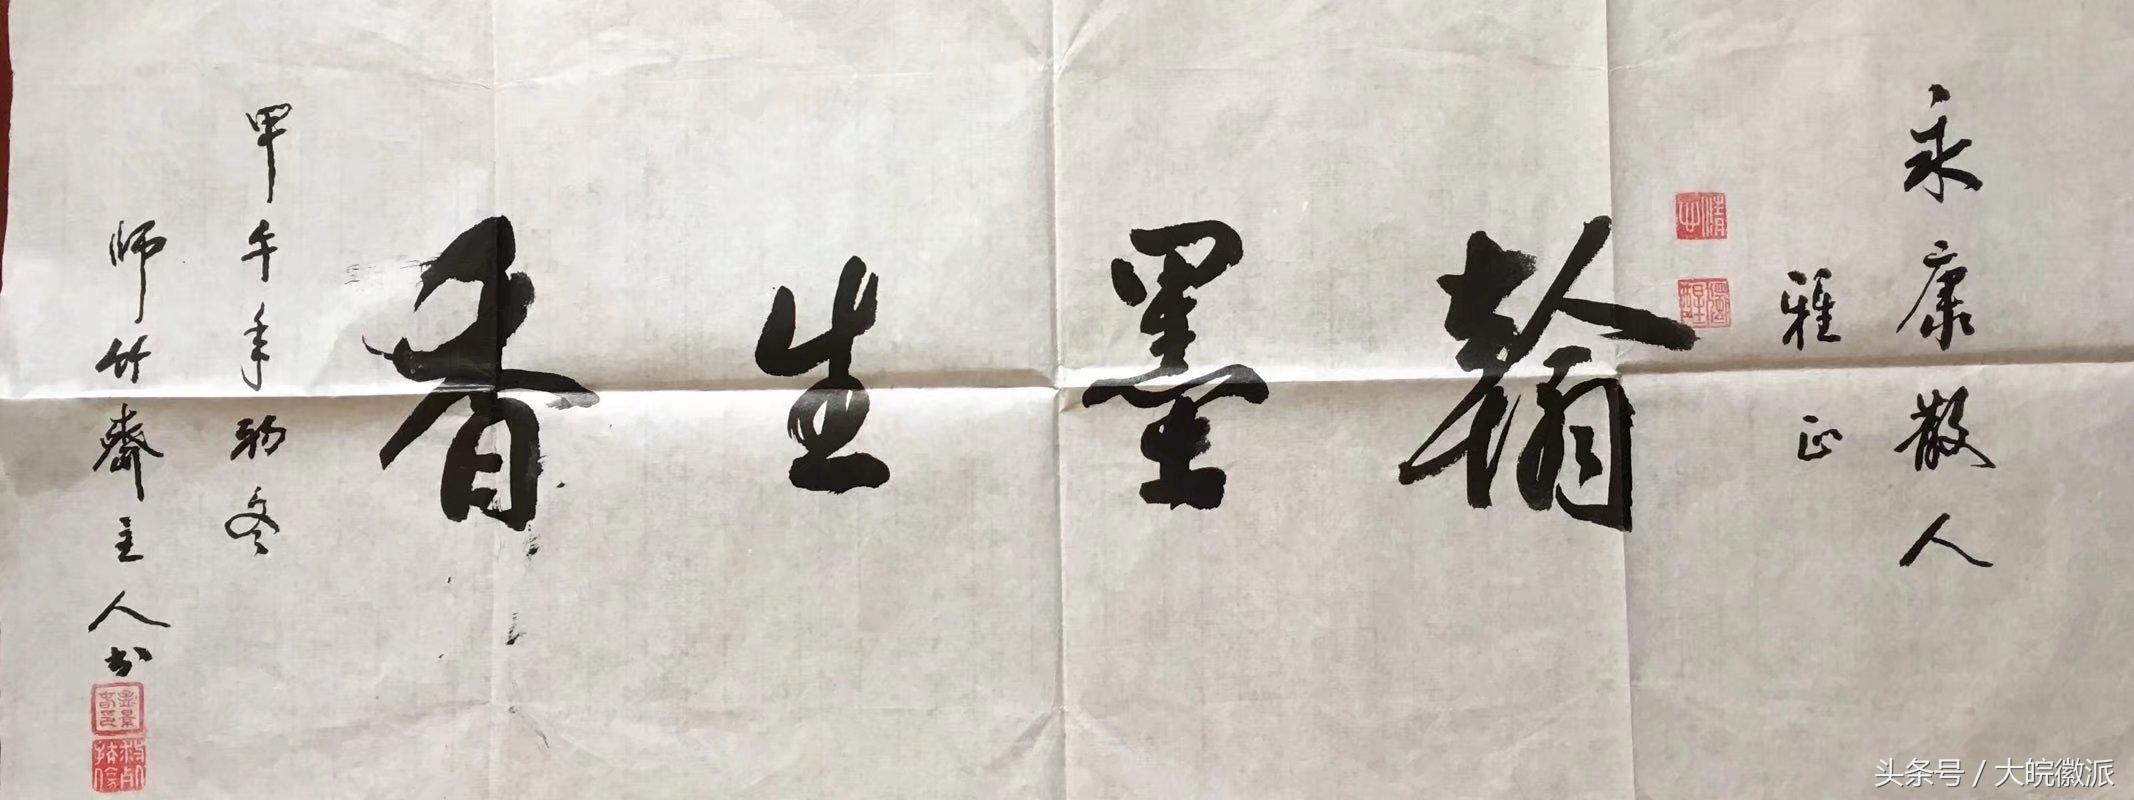 永康散人
雅正
翰墨生香
甲午年初冬
师竹齋主人书
头条号 / 大皖徽派